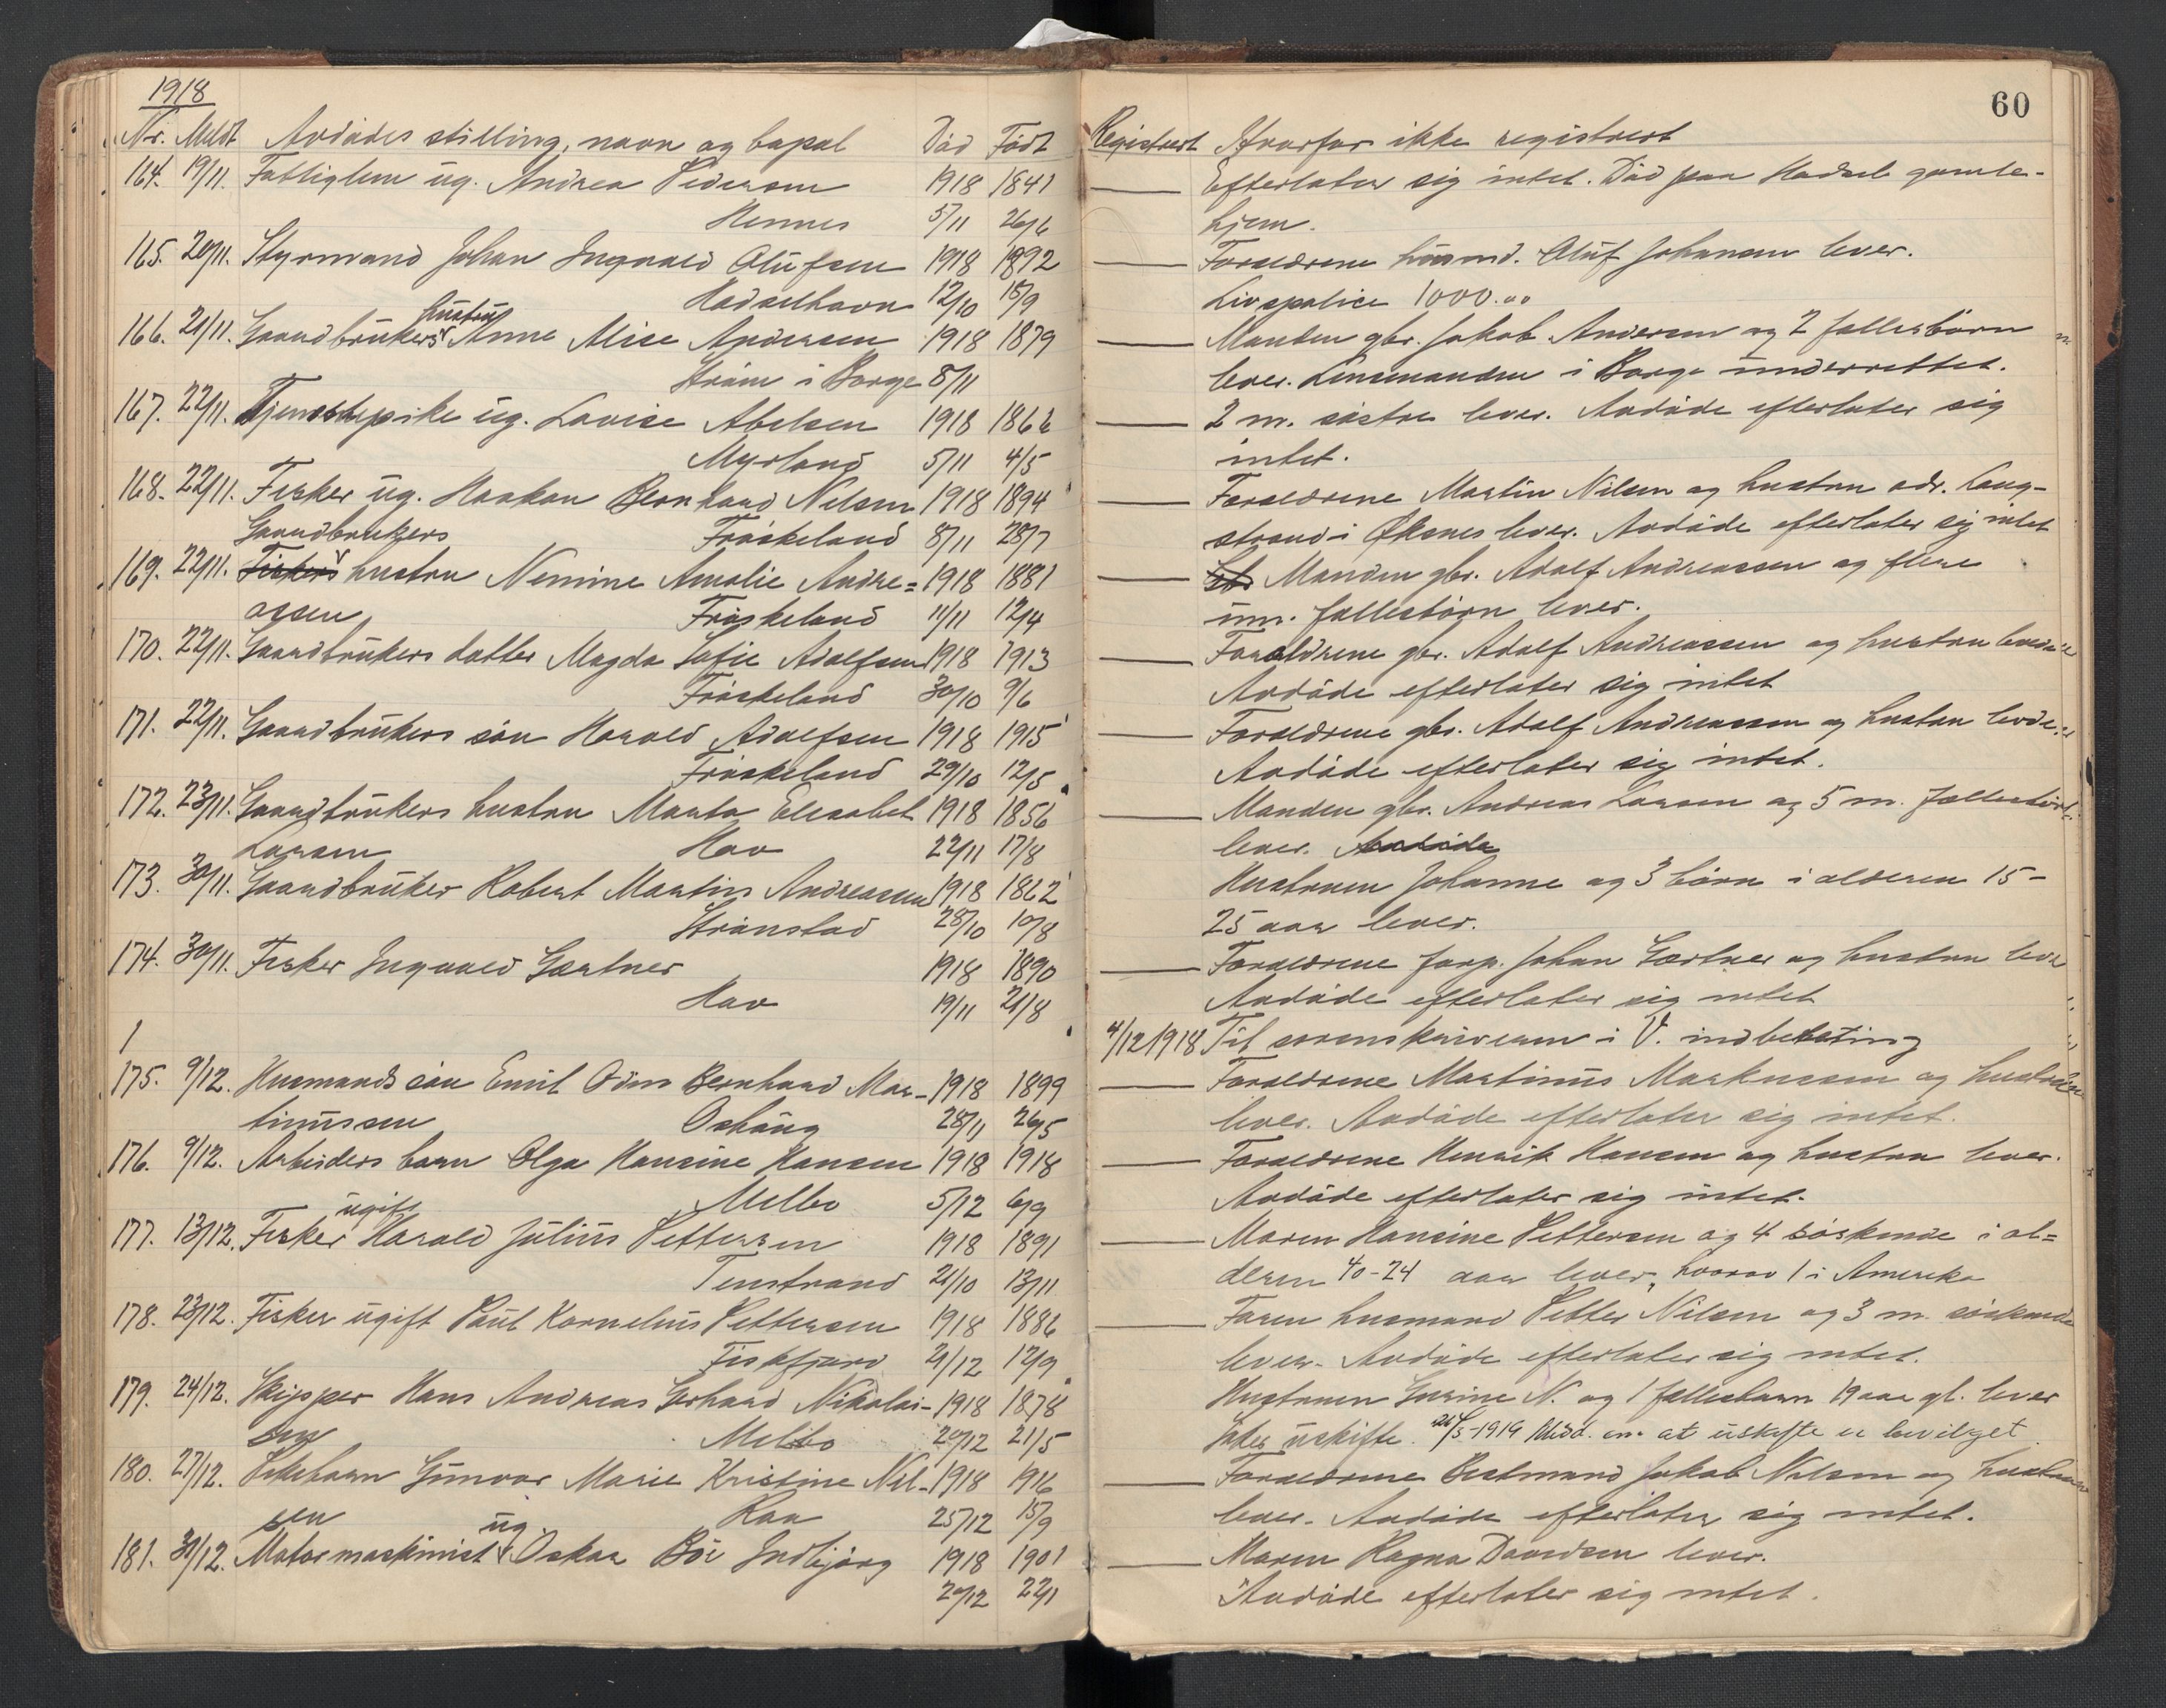 1918
Nr. Meldt Avdødes stilling, navn og bopæl Død Født
164. 19/11. Fattiglem ug. Andrea Pedersen 1918 1841
Hennes 5/11 26/6
165. 20/11. Styrmand Johan Ingvald Olufsen 1918 1892
Hadselhavn 12/10 15/9
hustru
166. 21/11. Gaardbrukers Anne Alise Andersen 1918 1879
Strøm i Borge 8/11
167. 22/11. Tjenestepike ug. Lovise Abelsen 1918 1862
Myrland 5/11 4/5
168. 22/11. Fisker ug. Haakon Bernhard Nilsen 1918 1894
Gaardbrukers Frøskeland 8/11 28/7
169. 22/11. Fiskers hustru Nemine Amalie Andre= 1918 1881
assen Frøskeland 11/11 12/4
170. 22/11. Gaardbrukers datter Magda Sofie Adolfsen 1918 1913
Frøskeland 30/10 9/6
171. 22/11. Gaardbrukers søn Harald Adolfsen 1918 1915
Frøskeland 29/10 12/5
172. 23/11. Gaardbrukers hustru Marta Elesabet 1918 1856
Larsen Hav 22/11 17/8
173. 30/11. Gaardbruker Robert Martin Andreassen 1918 1862
Strønstad 28/10 10/8
174. 30/11. Fisker Ingvald Gærtner 1918 1890
Hav 19/11 21/8
1
175. 9/12. Husmands søn Emil Odin Bernhard Mar- 1918 1899
tinussen Oshaug 28/11 26/5
176. 9/12. Arbeiders barn Olga Hansine Hansen 1918 1918
Melbo 5/12 6/9
ugift
177. 13/12. Fisker Harald Julius Pettersen 1918 1891
Tenstrand 21/10 13/11
178. 23/12. Fisker ugift Paul Kornelius Pettersen 1918 1886
Fiskfjord 21/12 12/9
179. 24/12. Skipper Hans Andreas Gerhard Nikolai- 1918 1878
sen Melbo 20/12 21/5
180. 27/12. Pikebarn Gunvor Marie Kristine Nil- 1918 1916
sen Ran 25/12 15/9
ug.
181. 30/12. Motormaskinist Oskar Bøe Indbjørg 1918 1901
20/12 22/1
60
Registrert Hvorfor ikke registrert
Efterlater sig intet. Død paa Hadsel gamle-
hjem.
Forældrene husmd. Oluf Johansen lever.
Livspolice 1000.00
Manden gbr. Jakob Andersen og 2 fællesbørn
lever. Lensmanden i Borge underrettet.
2 m. søstre lever. Avdøde efterlater sig
intet.
Forældrene Martin Nilsen og hustru adr. Lang-
strand i Øksnes lever. Avdøde efterlater sig intet
Manden gbr. Adolf Andreassen og flere
um. fællesbørn lever.
Forældrene gbr. Adolf Andreassen og hustru
Avdøde efterlater sig intet
Forældrene gbr. Adolf Andreassen og hustru
Avdøde efterlater sig intet.
Manden gbr. Andreas Larsen og 5 m. fællesbørn
lever. Avdøde
Hustruen Johanne og 3 børn i alderen 15-
25 aar lever.
Forældrene forp. Johan Gærtner og hustru lever
Avdøde efterlater sig intet
4/12 1918 Til sorenskriveren i V. indberetning
Forældrene Martinus Markussen og hustru
lever. Avdøde efterlater sig intet.
Forældrene Henrik Hansen og hustru lever.
Avdøde efterlater sig intet.
Moren Hansine Pettersen og 4 søskende i al=
deren 40-24 aar lever, hvorav 1 i Amerika
Faren husmand Petter Nilsen og 3 m. søskende
lever. Avdøde efterlater sig intet.
Hustruen Gurine N. og 1 fællesbarn 19 aar gl. lever
uskifte. 1919 Medd. om at uskifte er bevilget.
Forældrene Bestmand Jakob Nilsen og hustru
lever. Avdøde efterlater sig intet.
Moren Ragna Davidsen lever.
Avdøde efterlater sig intet.